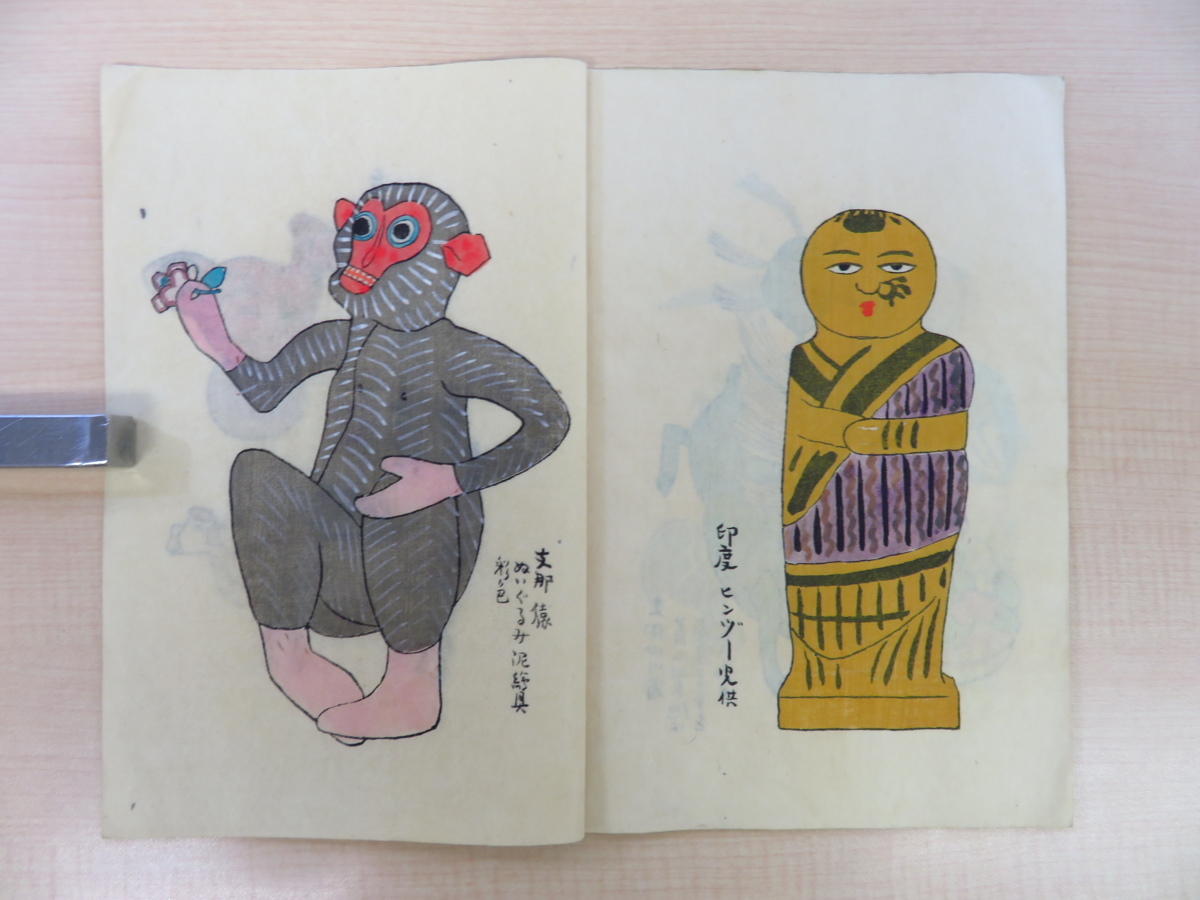 印度 ヒンヅー児供
支那 猿
ぬいぐるみ泥絵具
彩り色